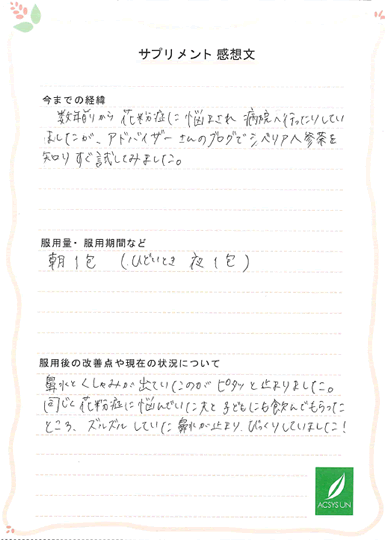 サプリメント 感想文
今までの経緯
数年前から 花粉症に悩まされ 病院へ行ったりしてい
ましたが、アドバイザーさんのブログでシベリア人参茶を
知りすぐ試してみました。
服用量・服用期間など
朝1包 (ひどいとき 夜1包)
服用後の改善点や現在の状況について
鼻水とくしゃみが出ていたのがピタッと止まりました。
同じく花粉症に悩んでいた夫と子どもにも飲んでもらった
ところ、ズルズルしていた鼻水が止まり びっくりしていました!
ACSYSUN